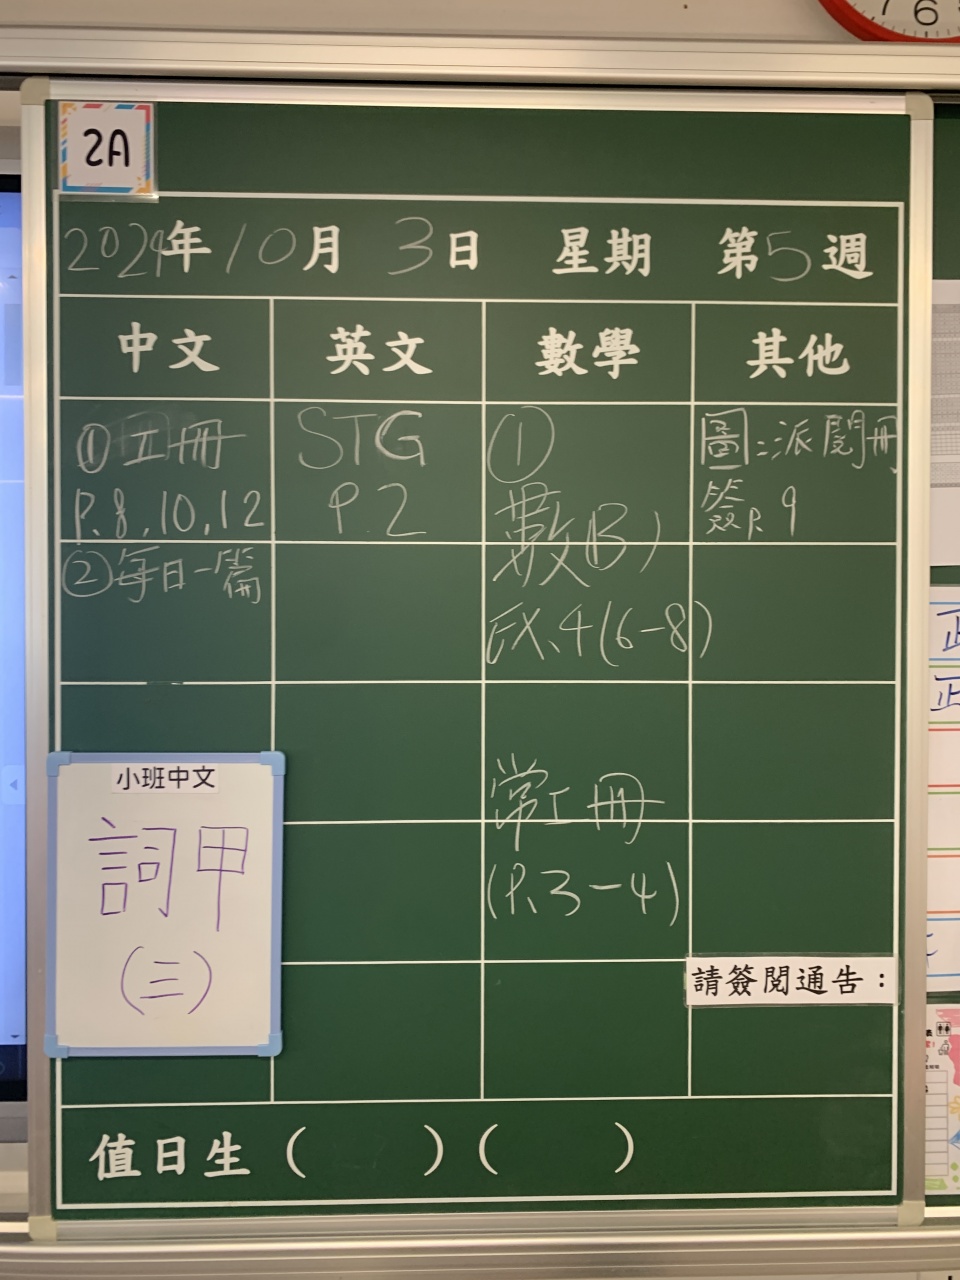 7 6
2A
2024年10月3日 星期 第5週
中文 英文 數學 其他
①工冊
P.8,10,12
②每日一篇
STG
P.2
①
數(B)
EX.4(6-8)
常工冊
(P.3-4)
圖:派閱冊
簽P.9
小班中文
詞甲
(三)
請簽閱通告：
值日生（ ）（ ）
正
正